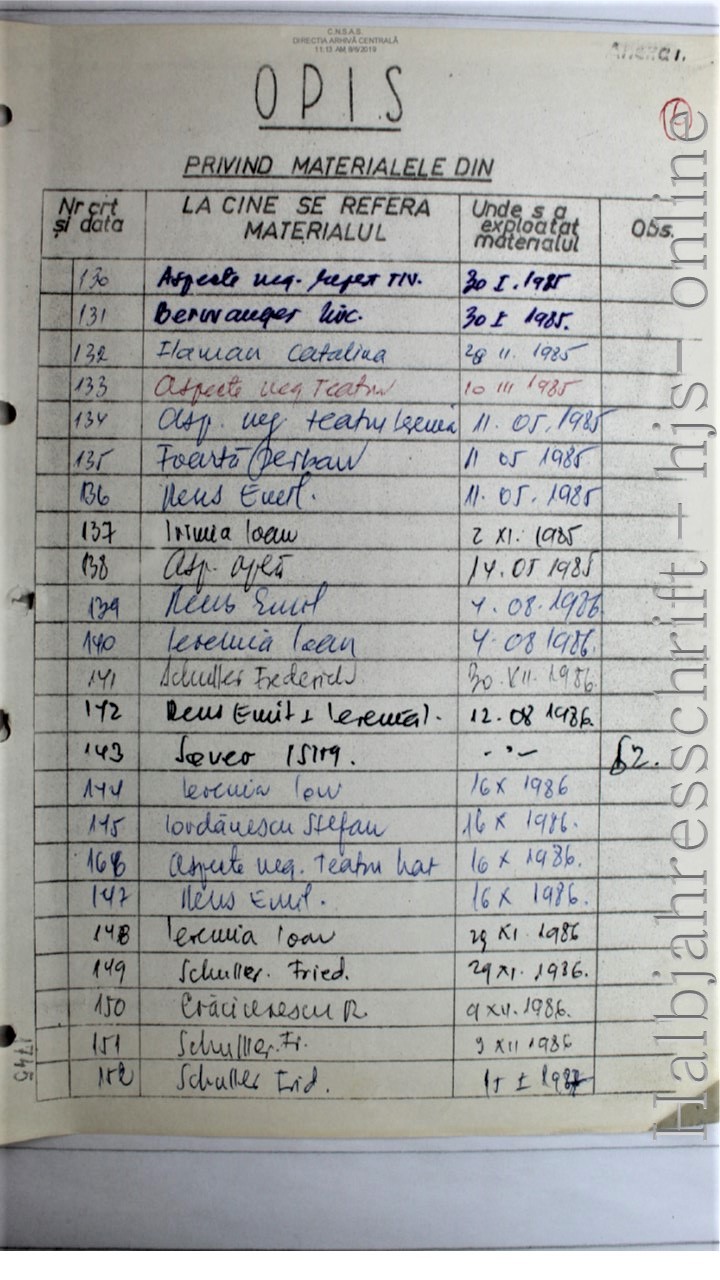 C.N.S.A.S.
DIRECȚIA ARHIVĂ CENTRALĂ
11:13 AM, 8/6/2019
Anexa 1.
OPIS
PRIVIND MATERIALELE DIN
Nr crt și data LA CINE SE REFERA MATERIALUL Unde s a exploatat materialul Obs.
130 Aspecte neg. 30 I. 1985
131 Berwanger Nic. 30 I 1985.
132 Ilaman Catalina 28 II. 1985
133 Aspecte neg Teatru 10 III 1985
134 Asp. neg teatru Ieremia 11. 05. 1985
135 Foarță Șerban 11 05 1985
136 Reus Emil. 11. 05. 1985
137 Irimia Ioan 2 XI. 1985
138 Asp. 14. 05 1985
139 Reus Emil 4. 08. 1986
140 Ieremia Ioan 4. 08 1986.
141 Schuller Frederich 30. VII. 1986.
142 Reus Emil I Ieremia I. 12. 08 1986.
143 - " - 62.
144 Ieremia Ion 16 X 1986
145 Iordănescu Stefan 16 X 1986.
166 Aspecte neg. Teatru Nat 16 X 1986.
147 Reus Emil. 16 X 1986.
148 Ieremia Ioan 29 XI. 1986
149 Schuller. Fried. 29 XI. 1986.
150 Crăciunescu R. 9 XII. 1986.
151 Schuller. Fr. 9 XII 1986
152 Schuller Frid. 15 I 1987
1745
Halbjahresschrift – hjs - online